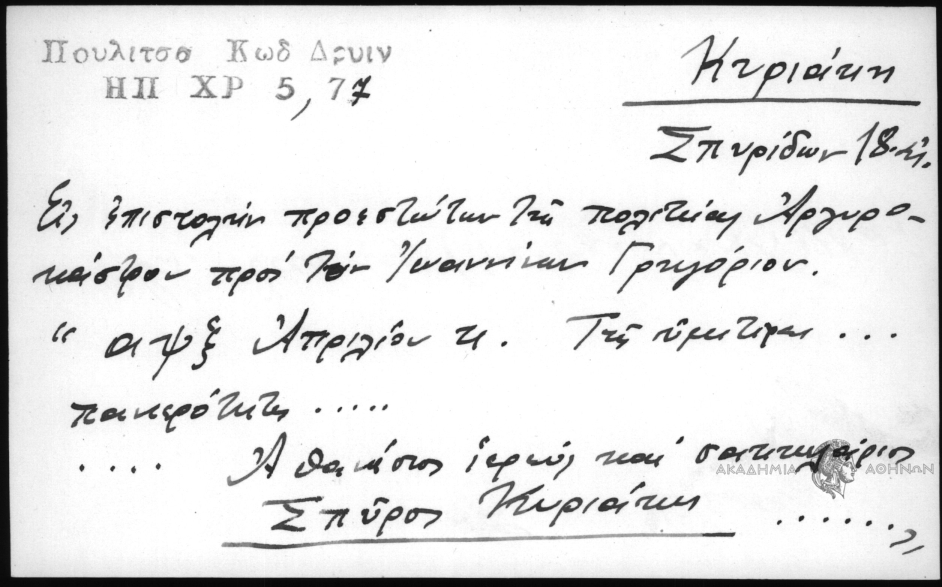 Πουλιτσα Κωδ Δρυιν
ΗΠ ΧΡ 5, 77
Κυριάκη
Σπυρίδων 18
Εἰς ἐπιστολὴν προεστώτων τῆς πολιτείας Ἀργυρο-
κάστρου πρὸς τὸν Ἰωαννίνων Γρηγόριον.
"αψξ Ἀπριλίου κ. Τῆς ὑμετέρας ...
πανιερότητος .....
.... Ἀθανάσιος ἱερεὺς καὶ σακελλάριος
Σπῦρος Κυριάκης ......"
ΑΚΑΔΗΜΙΑ ΑΘΗΝΩΝ